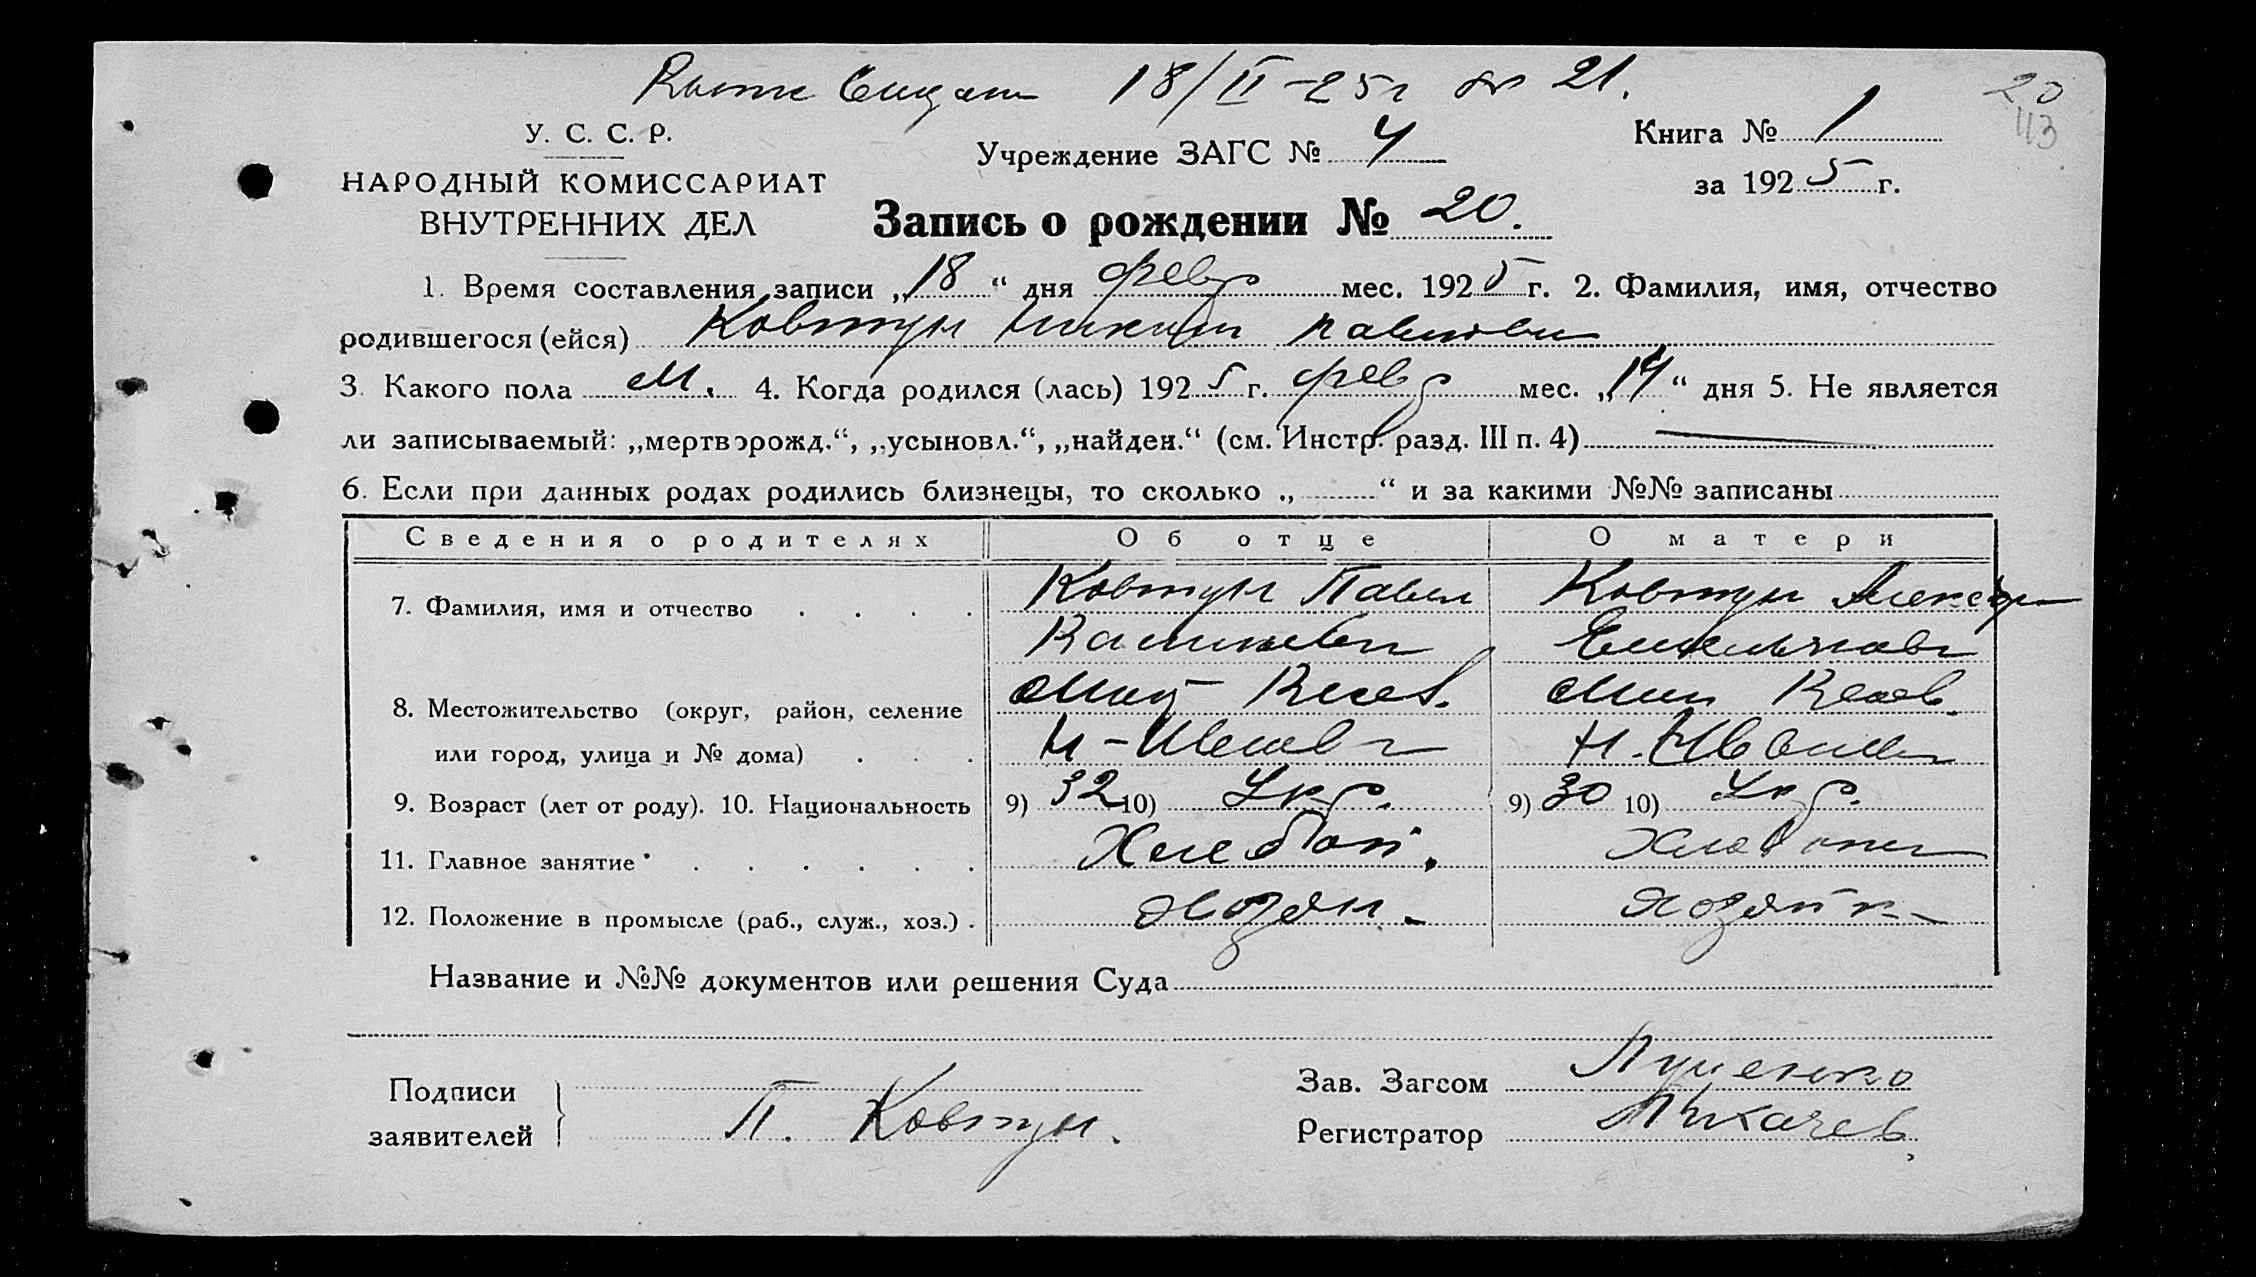 18/II-25г № 21.
20
113
У. С. С. Р.
Учреждение ЗАГС № 4
Книга № 1
НАРОДНЫЙ КОМИССАРИАТ
за 1925 г.
ВНУТРЕННИХ ДЕЛ
Запись о рождении № 20.
1. Время составления записи „18“ дня февр мес. 1925 г. 2. Фамилия, имя, отчество
родившегося (ейся) Ковтун Никит Павлов
3. Какого пола М. 4. Когда родился (лась) 1925 г. февр мес. „14“ дня 5. Не является
ли записываемый: „мертворожд.“, „усыновл.“, „найден.“ (см. Инстр. разд. III п. 4) —
6. Если при данных родах родились близнецы, то сколько „ “ и за какими №№ записаны
Сведения о родителях Об отце О матери
7. Фамилия, имя и отчество Ковтун Павел Ковтун Александр
Емельянов
8. Местожительство (округ, район, селение
или город, улица и № дома)
9. Возраст (лет от роду). 10. Национальность 9) 32 10) Укр. 9) 30 10) Укр.
11. Главное занятие Хлебоп.
12. Положение в промысле (раб., служ., хоз.) Хозяин Хозяйк
Название и №№ документов или решения Суда
Подписи
заявителей
П. Ковтун.
Зав. Загсом Луценко
Регистратор Лихачев